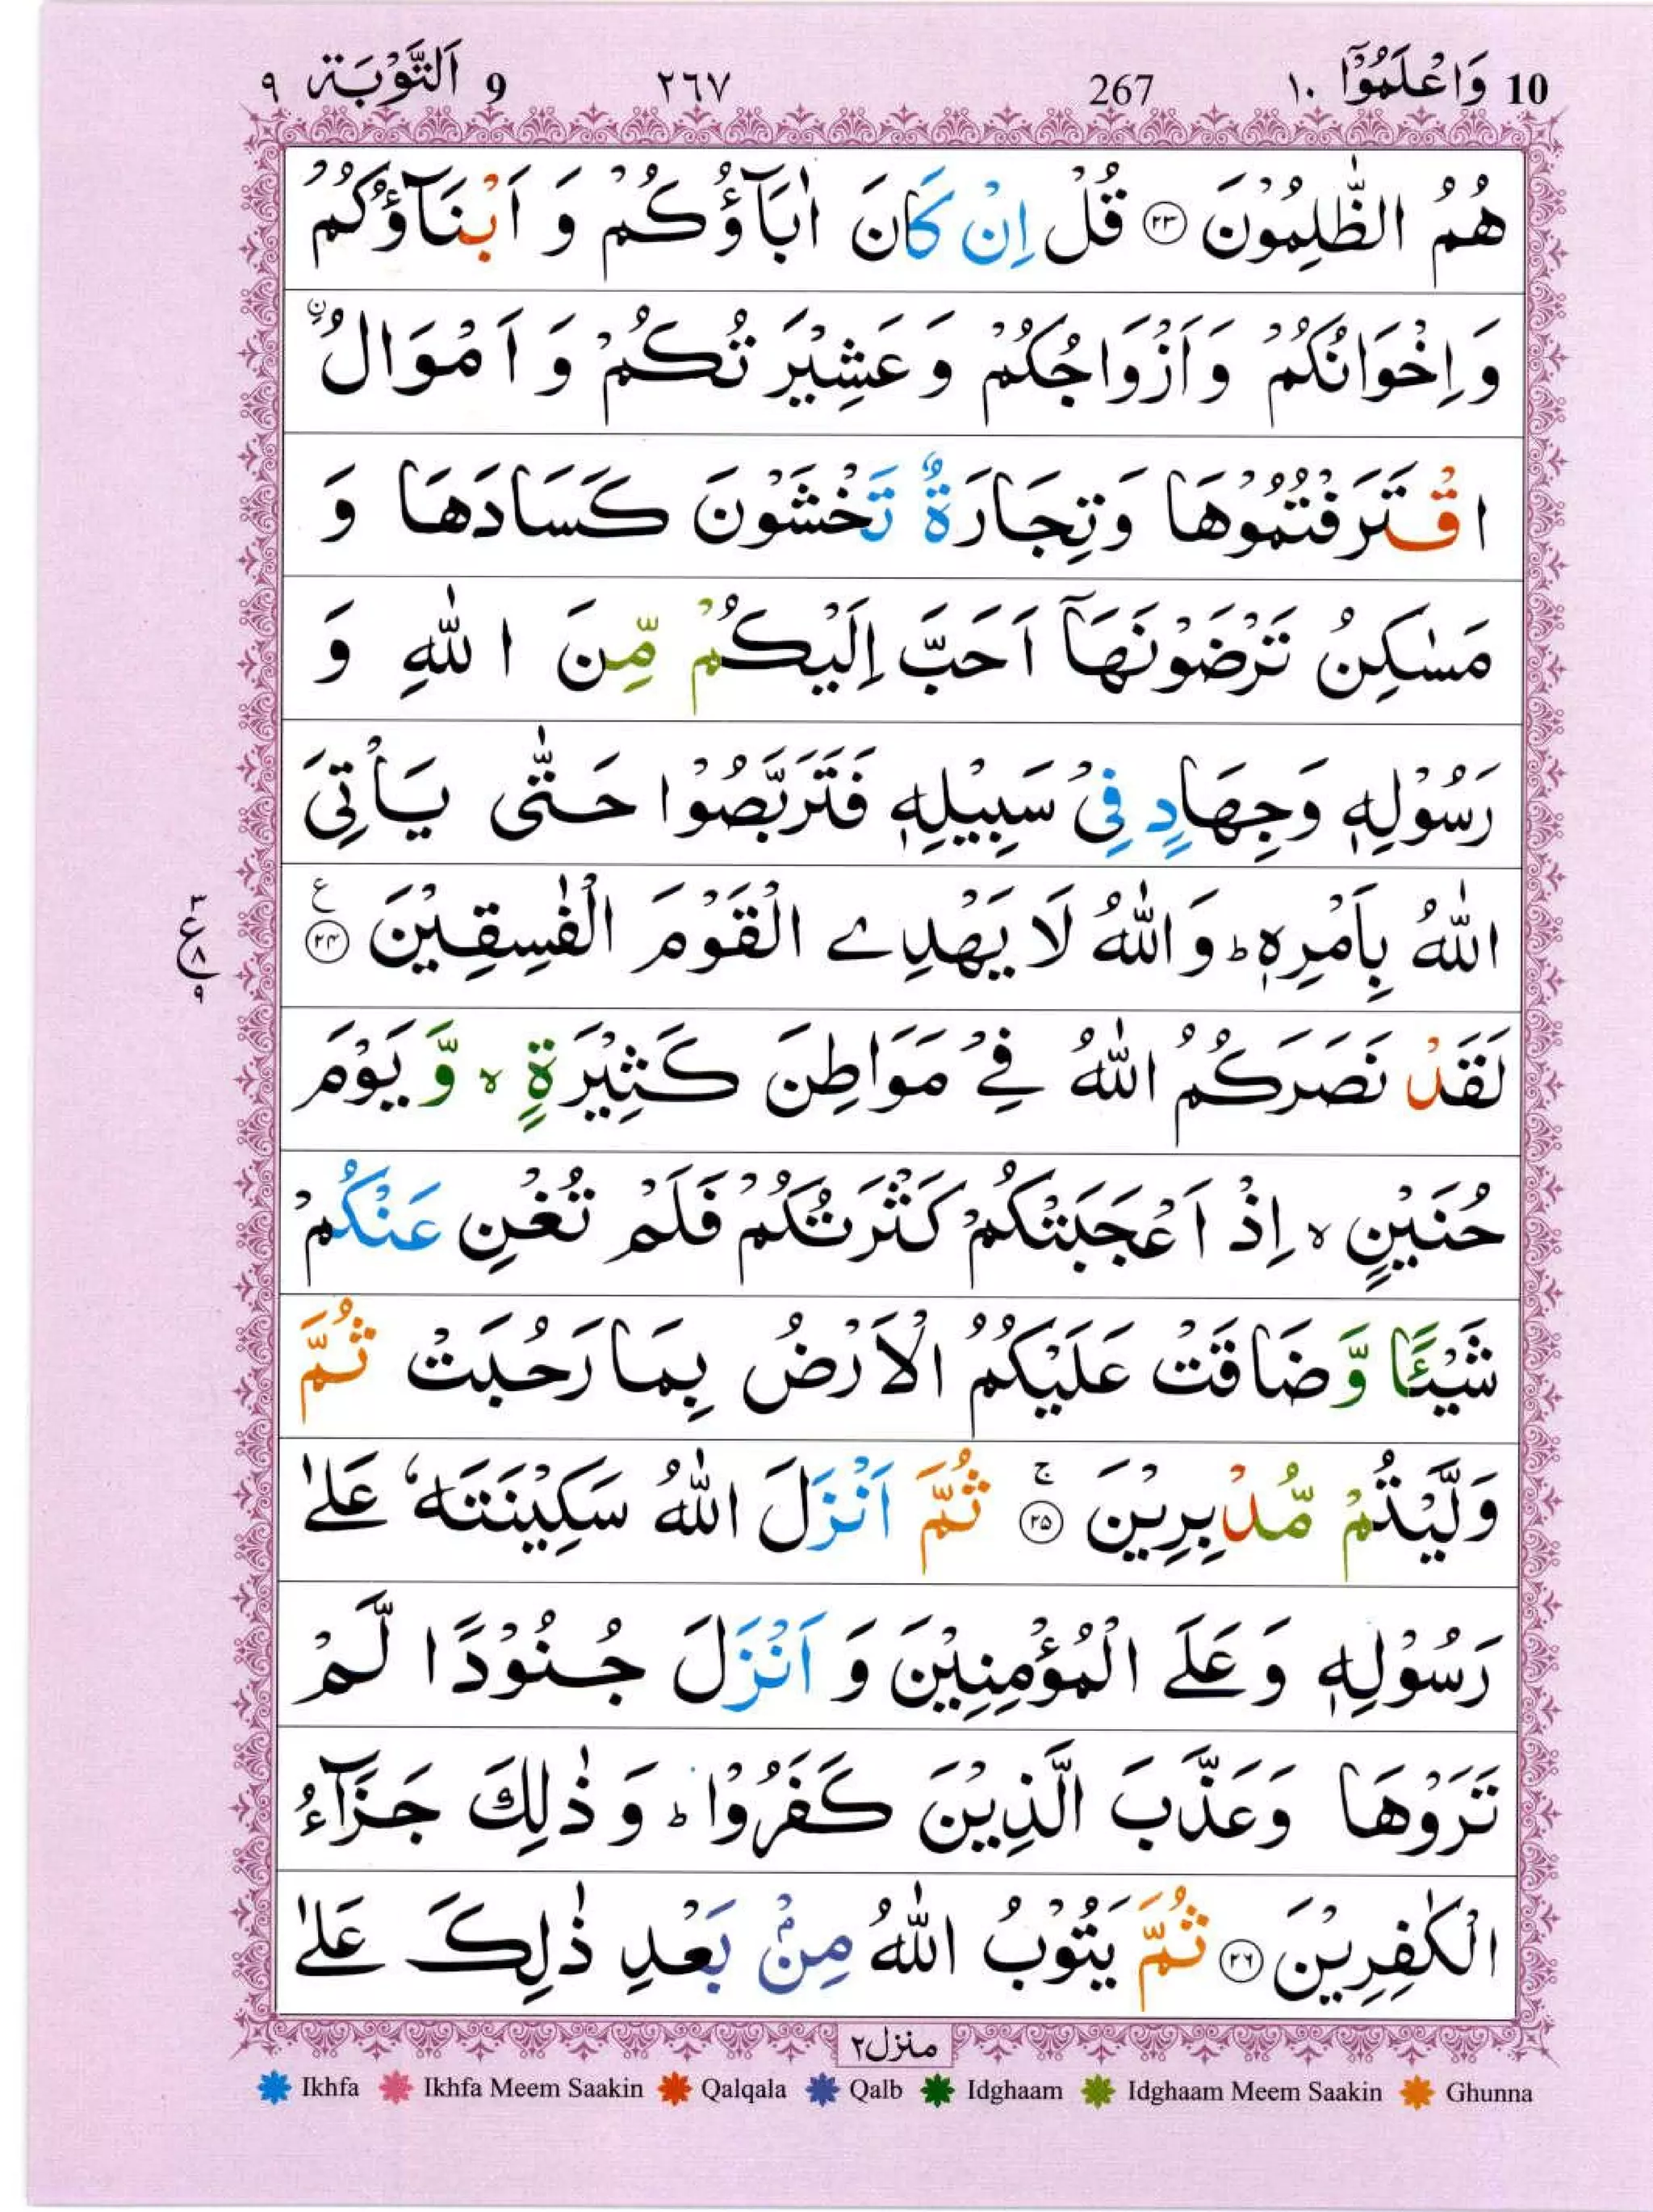 10 وَاعْلَمُوْٓا ١٠ 267 ٢٦٧ 9 اَلتَّوْبَة ٩
هُمُ الظّٰلِمُوْنَ ٢٣ قُلْ اِنْ كَانَ اٰبَآؤُكُمْ وَ اَبْنَآؤُكُمْ
وَاِخْوَانُكُمْ وَاَزْوَاجُكُمْ وَعَشِيْرَتُكُمْ وَ اَمْوَالُ ۨ
اقْتَرَفْتُمُوْهَا وَتِجَارَةٌ تَخْشَوْنَ كَسَادَهَا وَ
مَسٰكِنُ تَرْضَوْنَهَآ اَحَبَّ اِلَيْكُمْ مِّنَ اللّٰهِ وَ
رَسُوْلِهٖ وَجِهَادٍ فِيْ سَبِيْلِهٖ فَتَرَبَّصُوْا حَتّٰى يَاْتِيَ
اللّٰهُ بِاَمْرِهٖ ؕ وَاللّٰهُ لَا يَهْدِے الْقَوْمَ الْفٰسِقِيْنَ ٢٤ ع
٣ ع ٨ ٩
لَقَدْ نَصَرَكُمُ اللّٰهُ فِےْ مَوَاطِنَ كَثِيْرَةٍ ۙ وَّيَوْمَ
حُنَيْنٍ ۙ اِذْ اَعْجَبَتْكُمْ كَثْرَتُكُمْ فَلَمْ تُغْنِ عَنْكُمْ
شَيْـًٔا وَّضَاقَتْ عَلَيْكُمُ الْاَرْضُ بِمَا رَحُبَتْ ثُمَّ
وَلَّيْتُمْ مُّدْبِرِيْنَ ٢٥ ۚ ثُمَّ اَنْزَلَ اللّٰهُ سَكِيْنَتَهٗ عَلٰى
رَسُوْلِهٖ وَعَلَى الْمُؤْمِنِيْنَ وَ اَنْزَلَ جُنُوْدًا لَّمْ
تَرَوْهَا وَعَذَّبَ الَّذِيْنَ كَفَرُوْا ؕ وَذٰلِكَ جَزَآءُ
الْكٰفِرِيْنَ ٢٦ ثُمَّ يَتُوْبُ اللّٰهُ مِنْۢ بَعْدِ ذٰلِكَ عَلٰى
منزل ٢
Ikhfa Ikhfa Meem Saakin Qalqala Qalb Idghaam Idghaam Meem Saakin Ghunna